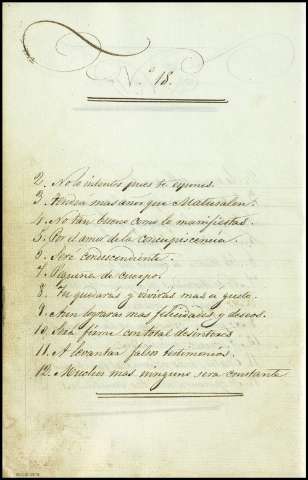 N.º 18.
2. No lo intentes pues te espones.
3. Tendra mas amor que Naturalen.
4. No tan bueno como lo manifiestas.
5. Por el amor de la concupiscencia.
6. Sera condescendiente.
7. Alguna de cuerpo.
8. Tu quisarás y vivirás mas á gusto.
9. Aun lograras mas felicidades y deseos.
10. Sea firme con total desinteres
11. A levantar falsos testimonios.
12. Muchos mas ninguno sera constante